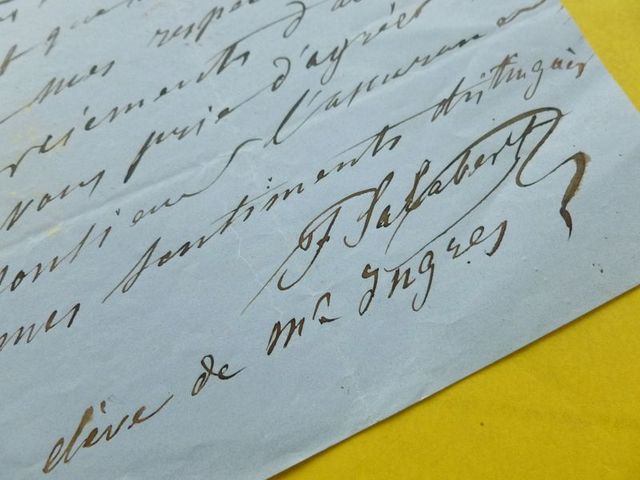 mes respe
erciements d'a
vous prie d'agréer
Monsieur l'assurance
mes sentiments distingués
F Salabert
élève de Mr Ingres